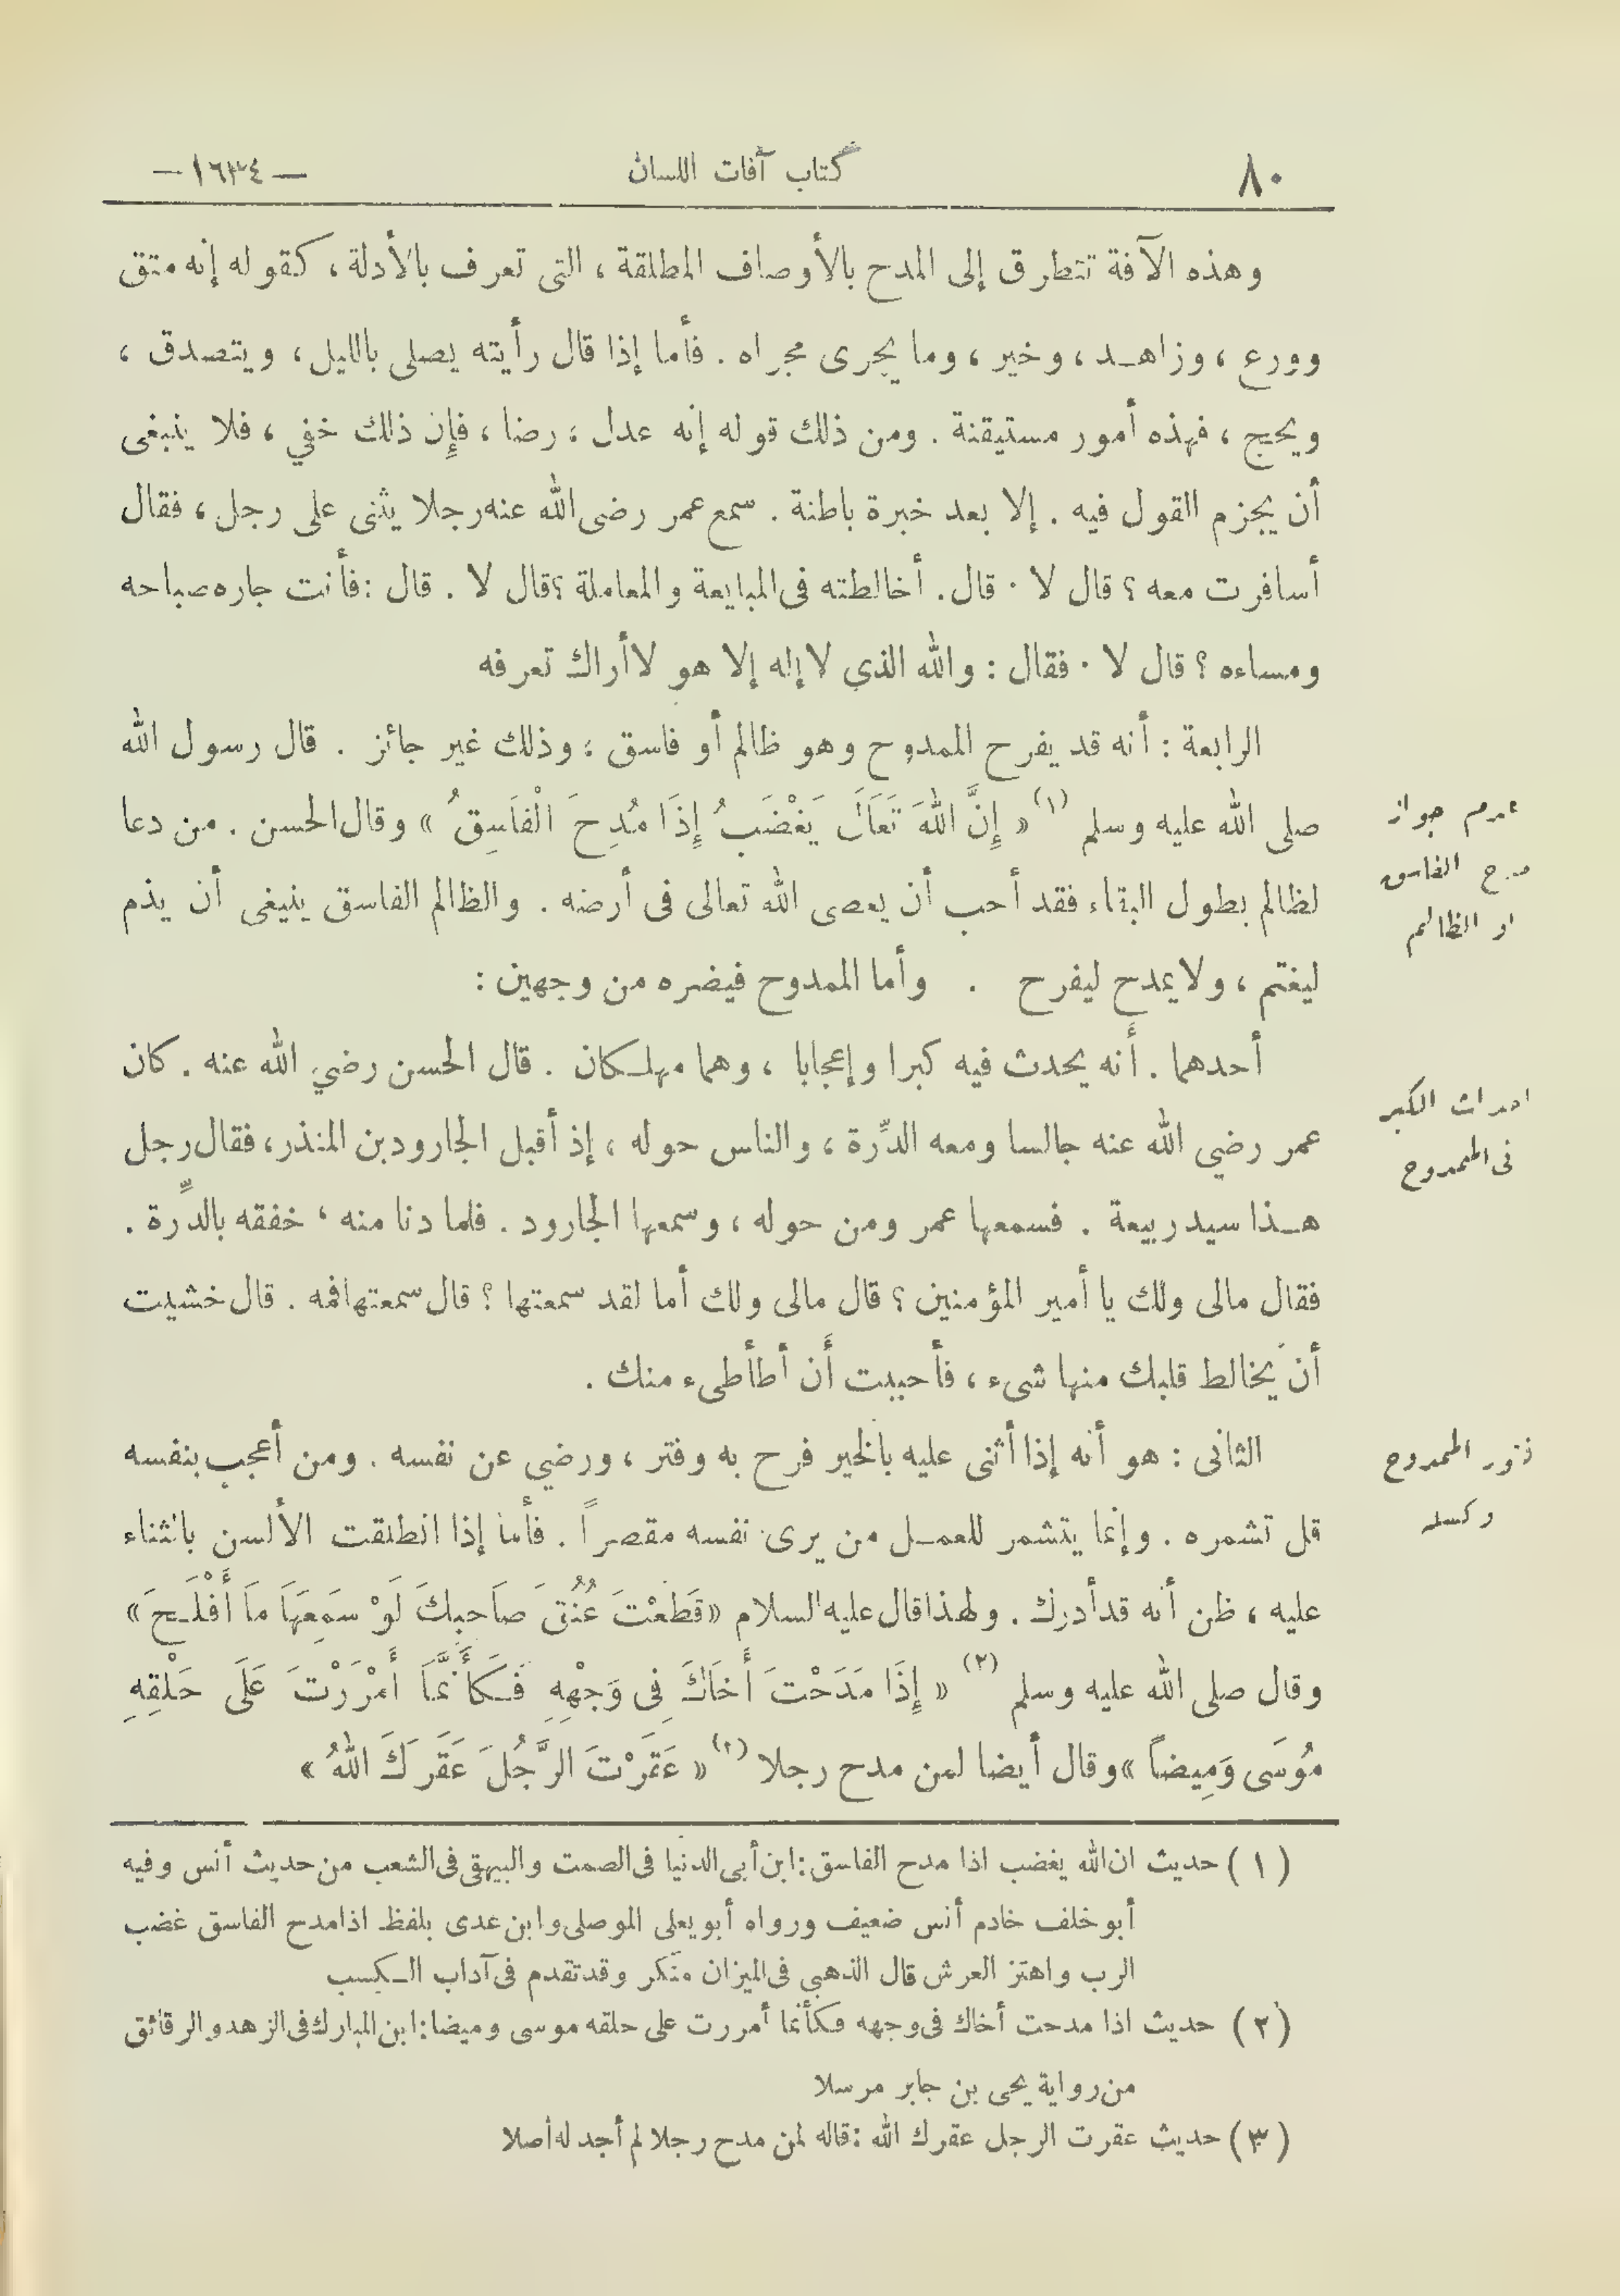 ٨٠ كتاب آفات اللسان — ١٦٣٤ —
وهذه الآفة تتطرق إلى المدح بالأوصاف المطلقة ، التى تعرف بالأدلة ، كقوله إنه متق
وورع ، وزاهـد ، وخير ، وما يجرى مجراه . فأما إذا قال رأيته يصلى بالليل ، ويتصدق ،
ويحج ، فهذه أمور مستيقنة . ومن ذلك قوله إنه عدل ، رضا ، فإن ذلك خفي ، فلا ينبغى
أن يجزم القول فيه . إلا بعد خبرة باطنة . سمع عمر رضى الله عنه رجلا يثنى على رجل ، فقال
أسافرت معه ؟ قال لا . قال . أخالطته فى المبايعة والمعاملة ؟ قال لا . قال : فأنت جاره صباحه
ومساءه ؟ قال لا . فقال : والله الذي لا إله إلا هو لا أراك تعرفه
الرابعة : أنه قد يفرح الممدوح وهو ظالم أو فاسق ؛ وذلك غير جائز . قال رسول الله
صلى الله عليه وسلم (١) « إِنَّ اللهَ تَعَالَى يَغْضَبُ إِذَا مُدِحَ الْفَاسِقُ » وقال الحسن . من دعا
لظالم بطول البقاء فقد أحب أن يعصى الله تعالى فى أرضه . والظالم الفاسق ينبغى أن يذم
ليغتم ، ولا يمدح ليفرح . وأما الممدوح فيضره من وجهين :
عدم جواز
مدح الفاسق
او الظالم
أحدهما . أنه يحدث فيه كبرا وإعجابا ، وهما مهلـكان . قال الحسن رضي الله عنه . كان
عمر رضي الله عنه جالسا ومعه الدِّرة ، والناس حوله ، إذ أقبل الجارود بن المنذر ، فقال رجل
هـذا سيد ربيعة . فسمعها عمر ومن حوله ، وسمعها الجارود . فلما دنا منه ، خفقه بالدِّرة .
فقال مالى ولك يا أمير المؤمنين ؟ قال مالى ولك أما لقد سمعتها ؟ قال سمعتها فمه . قال خشيت
أن يخالط قلبك منها شىء ، فأحببت أن أطأطىء منك .
احداث الكبر
فى الممدوح
الثانى : هو أنه إذا أثنى عليه بالخير فرح به وفتر ، ورضي عن نفسه . ومن أعجب بنفسه
قل تشمره . وإنما يتشمر للعمـل من يرى نفسه مقصراً . فأما إذا انطلقت الألسن بالثناء
عليه ، ظن أنه قد أدرك . ولهذا قال عليه السلام « قَطَعْتَ عُنُقَ صَاحِبِكَ لَوْ سَمِعَهَا مَا أَفْلَـحَ »
وقال صلى الله عليه وسلم (٢) « إِذَا مَدَحْتَ أَخَاكَ فِى وَجْهِهِ فَـكَأَنَّمَا أَمْرَرْتَ عَلَى حَلْقِهِ
مُوسَى وَمِيضاً » وقال أيضا لمن مدح رجلا (٢) « عَقَرْتَ الرَّجُلَ عَقَرَكَ اللهُ »
فتور الممدوح
وكسله
(١) حديث ان الله يغضب اذا مدح الفاسق : ابن أبى الدنيا فى الصمت والبيهقى فى الشعب من حديث أنس وفيه
أبو خلف خادم أنس ضعيف ورواه أبو يعلى الموصلى وابن عدى بلفظ اذا مدح الفاسق غضب
الرب واهتز العرش قال الذهبي فى الميزان منكر وقد تقدم فى آداب الـكسب
(٢) حديث اذا مدحت أخاك فى وجهه فكأنما أمررت على حلقه موسى وميضا : ابن المبارك فى الزهد والرقائق
من رواية يحى بن جابر مرسلا
(٣) حديث عقرت الرجل عقرك الله : قاله لمن مدح رجلا لم أجد له أصلا